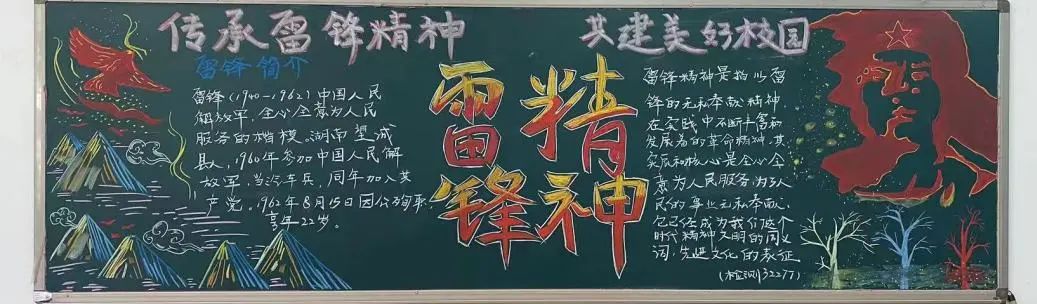 传承雷锋精神
共建美好校园
雷锋简介
雷锋(1940-1962)中国人民
解放军,全心全意为人民
服务的楷模。湖南望城
县人,1960年参加中国人民解
放军,当汽车兵,同年加入共
产党。1962年8月15日因公殉职
享年22岁。
雷精
锋神
雷锋精神是指以雷
锋的无私奉献精神
在实践中不断丰富和
发展着的革命精神,其
实质和核心是全心全
意为人民服务,为了人
民的事业无私奉献。
它已经成为我们这个
时代精神文明的同义
词,先进文化的表征
(检测32277)